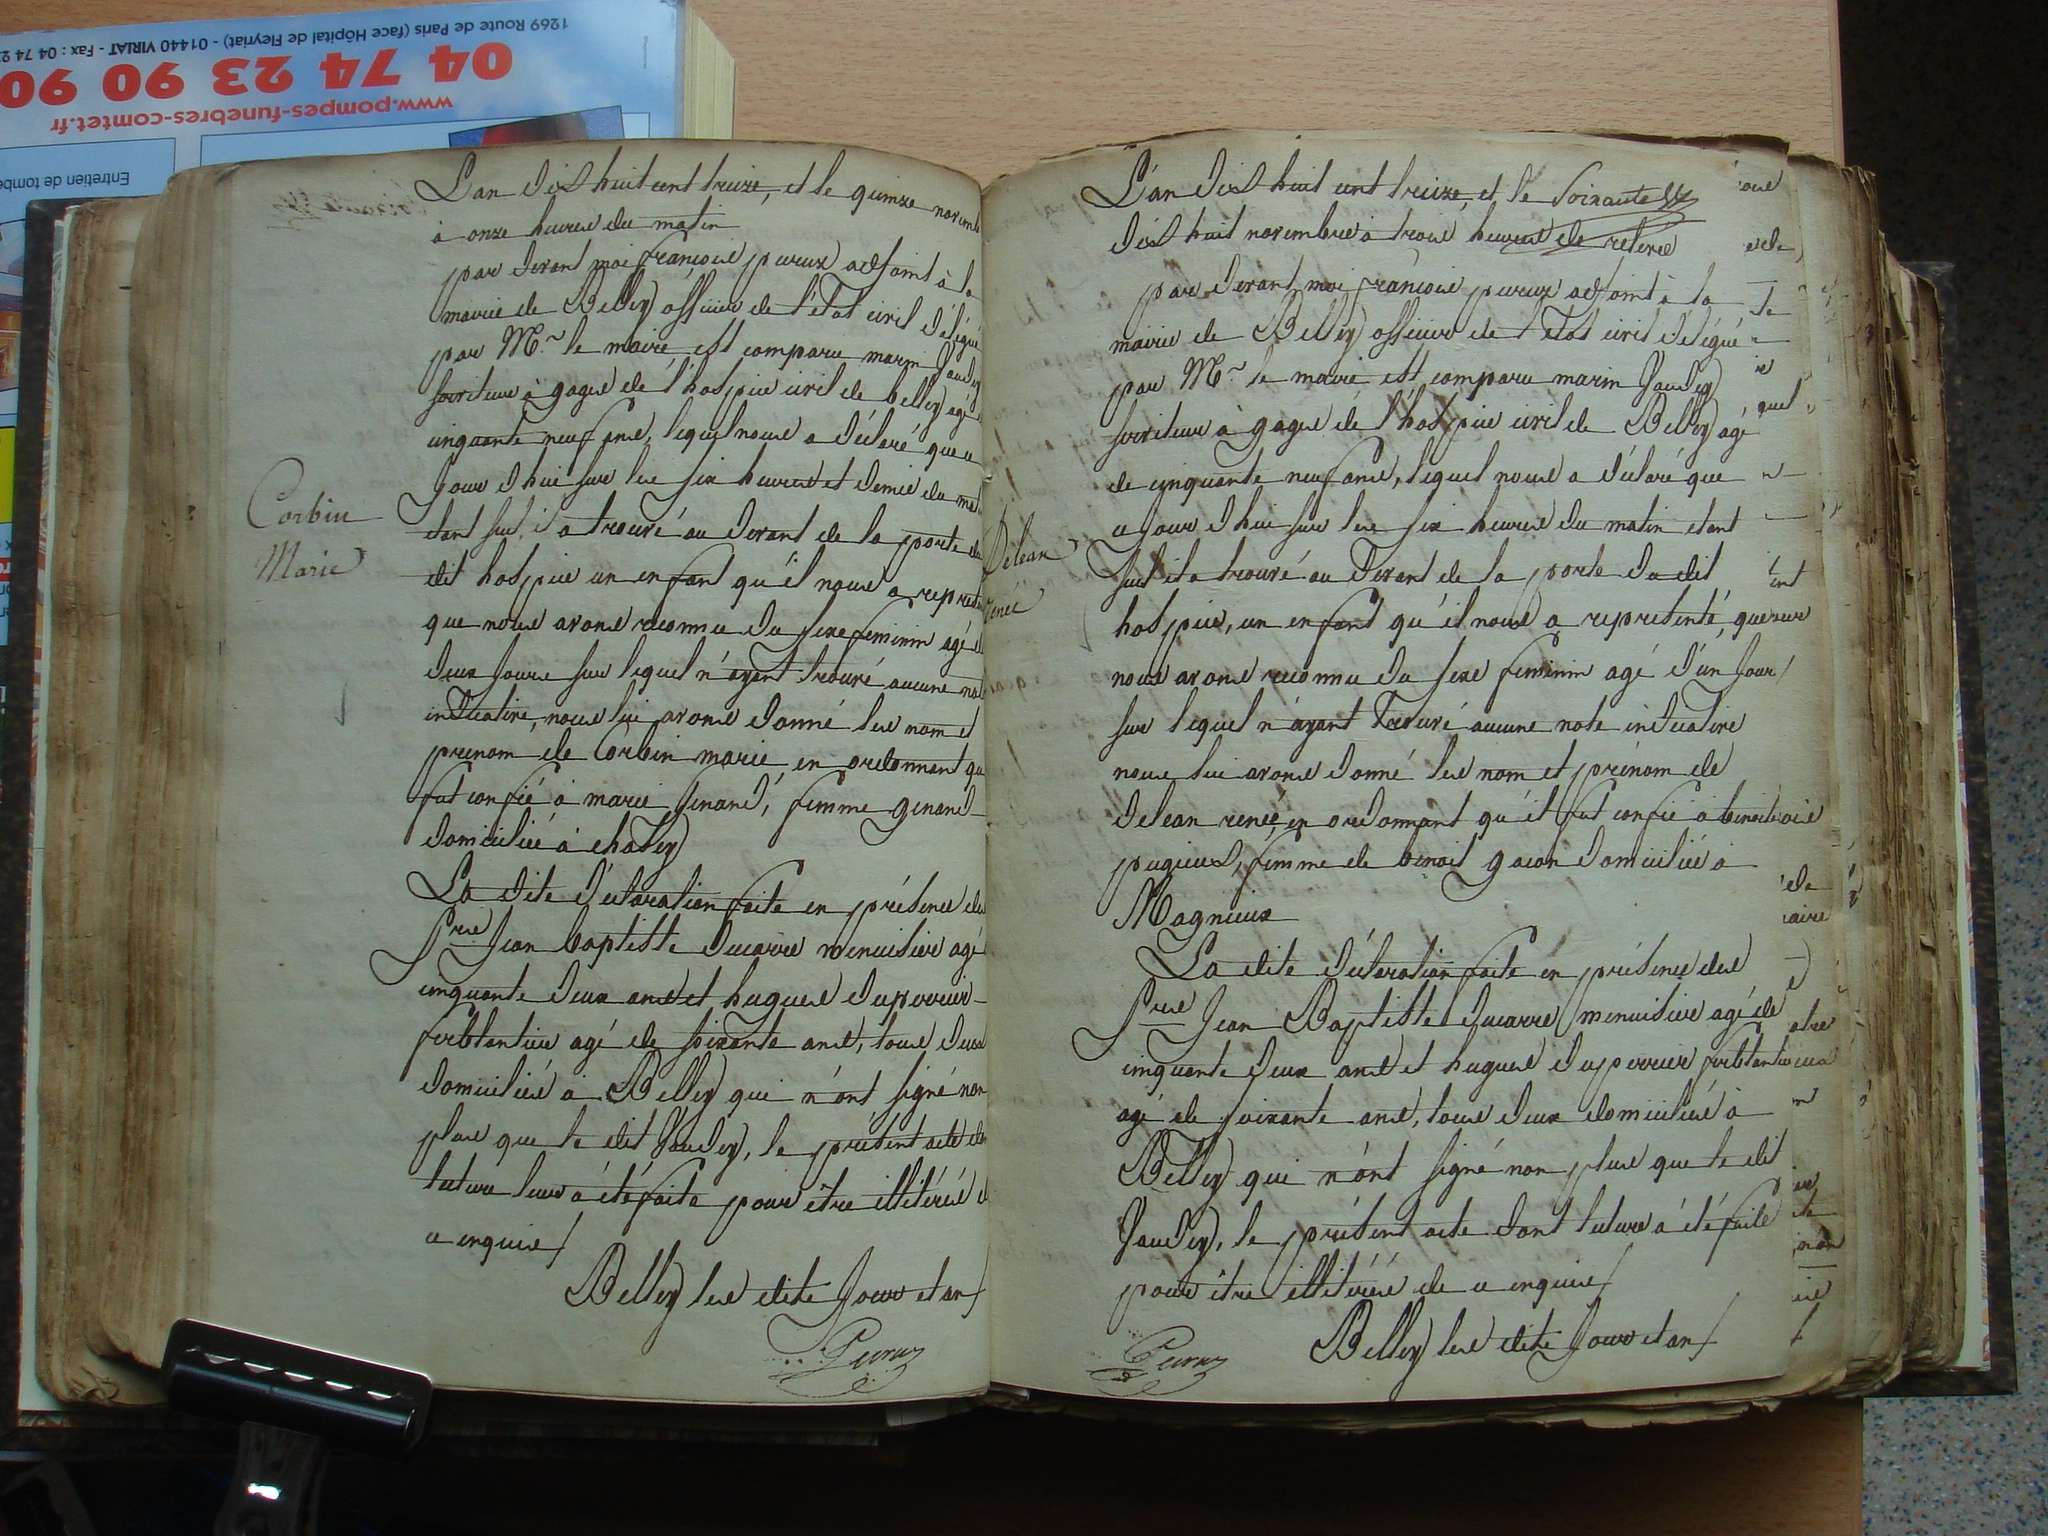 1269 Route de Paris (face Hôpital de Fleyriat) - 01440 VIRIAT - Fax : 04 74 2
04 74 23 90 90
www.pompes-funebres-comtet.fr
Entretien de tombe
L'an dix huit cent treize, et le quinze novemb
à onze heures du matin
par devant moi françois peruz adjoint à la
mairie de Belley officier de l'état civil délégué
par Mr le maire est comparu marin Jaudey
serviteur à gages de l'hospice civil de belley agé
cinquante neuf ans, lequel nous a déclaré que ce
Jour d'hui sur les six heures et demie du mat
étant sur, il a trouvé au devant de la porte du
dit hospice un enfant qu'il nous a représen
que nous avons reconnu du sexe feminin agé d
deux Jours sur lequel n'ayant trouvé aucune note
indicative, nous lui avons donné les nom et
prénom de Corbin marie en ordonnant qu
fut confié à marie Genand, femme genand
domiciliée à chatey
La dite déclaration faite en présence des
Srs Jean baptiste ducarre menuisier agé
cinquante deux ans et hugues duperrier
ferblantier agé de soixante ans, tous deux
domiciliés à Belley qui n'ont signé non
plus que le dit Jaudey, le présent acte don
lecture leur a été faite pour être illitérés d
ce enquis/
Belley les dits Jour et an/
Peruz
Corbin
Marie
L'an dix huit cent treize, et le Soixante
dix huit novembre à trois heures de relevée
par devant moi françois peruz adjoint à la
mairie de Belley officier de l'état civil délégué
par Mr le maire est comparu marin Jaudey
serviteur à gages de l'hospice civil de Belley agé
de cinquante neuf ans, lequel nous a déclaré que
ce jour d'hui sur les six heures du matin étant
sur il a trouvé au devant de la porte du dit
hospice, un enfant qu'il nous a representé, que
nous avons reconnu du sexe feminin agé d'un Jour/
sur lequel n'ayant trouvé aucune note indicative
nous lui avons donné les nom et prénom de
delean renée en ordonnant qu'il fut confié à benoite
pugieux, femme de benoit gacon domiciliée à
Magnieux
La dite déclaration faite en présence des
Srs Jean Baptiste ducarre menuisier agé de
cinquante deux ans et hugues duperrier ferblantier
agé de soixante ans, tous deux domiciliés à
Belley qui n'ont signé non plus que le dit
Jaudey, le présent acte dont lecture a été faite
pour être illitérés de ce enquis/
Belley les dits Jour et an/
Peruz
Delean
renée